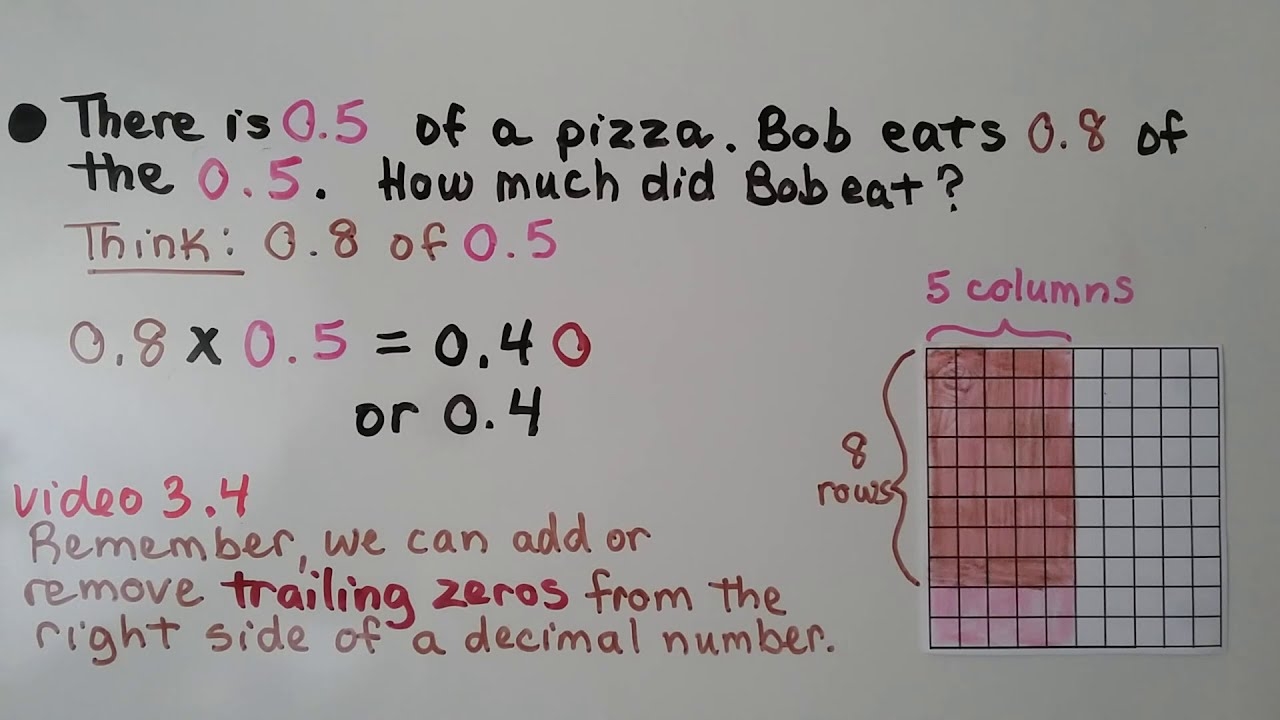 There is 0.5 of a pizza. Bob eats 0.8 of
the 0.5. How much did Bob eat?
Think: 0.8 of 0.5
0.8 x 0.5 = 0.40
or 0.4
5 columns
8
rows
video 3.4
Remember, we can add or
remove trailing zeros from the
right side of a decimal number.